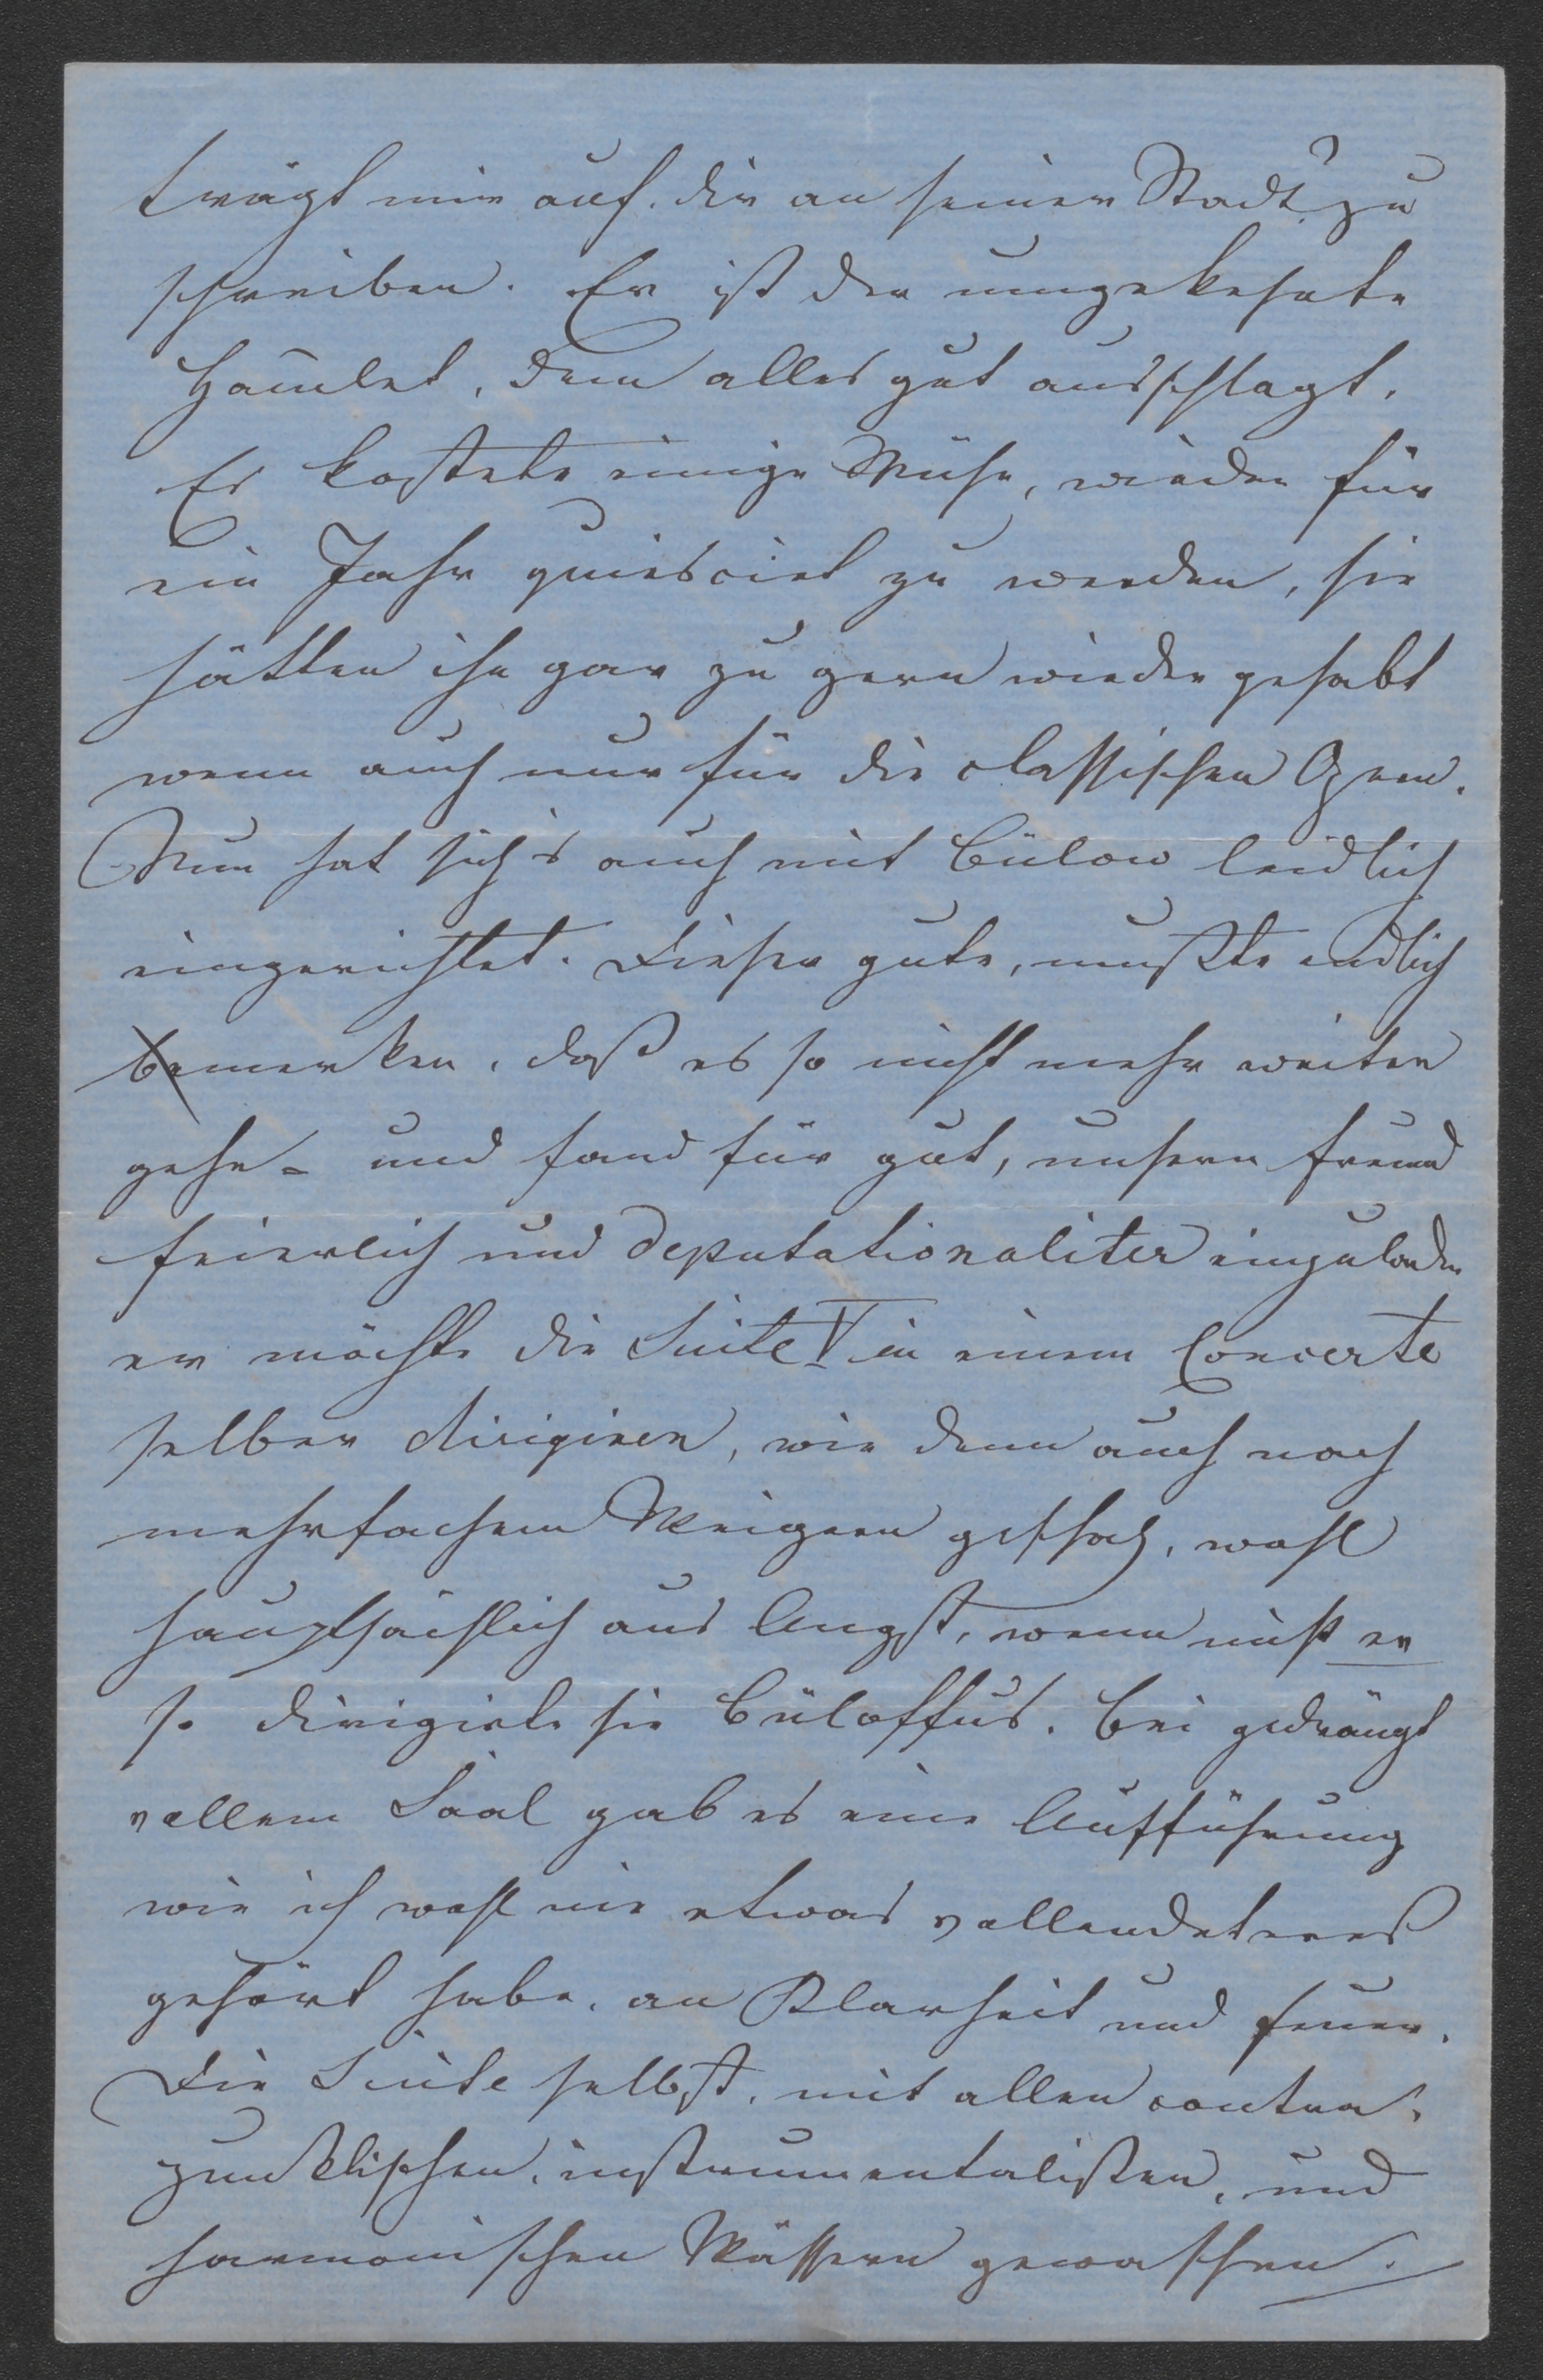 trägt mir auf, dir an seiner Statt zu
schreiben. Er ist der umgekehrte
Hamlet, dem alles gut ausschlagt.
Es kostete einige Mühe, wieder für
ein Jahr quiescirt zu werden, sie
hätten ihn gar zu gern wieder gehabt
wenn auch nur für die classischen Opern.
Nun hat sich's auch mit Bülow leidlich
eingerichtet. Dieser gute, mußte endlich
bemerken, daß es so nicht mehr weiter
gehe – und fand für gut, unsern Freund
feierlich und deputationaliter einzuladen
er möchte die Suite V in einem Concerte
selber dirigiren, wie denn auch nach
mehrfachem Weigern geschah, wohl
hauptsächlich aus Angst, wenn nicht er
so dirigirte sie Büloffus. Bei gedrängt
vollem Saal gab es eine Aufführung
wie ich wohl nie etwas vollendeteres
gehört habe, an Klarheit und Feuer.
Die Suite selbst, mit allen contra-
punktischen, instrumentalisten, und
harmonischen Wässern gewaschen.